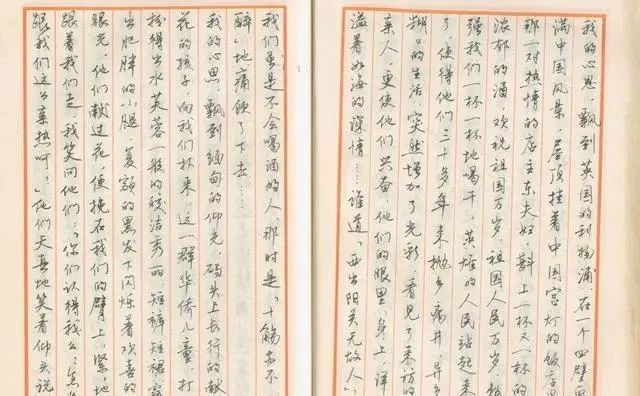 我的心思，飘到英国的利物浦，在一个四壁画
满中国风景，屋顶挂着中国宫灯的饭店里
那一对热情的店主东夫妇，斟上一杯又一杯
浓郁的酒，欢祝祖国万岁，祖国人民万岁，
强我们一杯一杯地喝干，英雄的人民站起来
了，使得他们三十多年来抛乡离井，异乡
糊口的生活，突然增加了光彩，看见了来访的
亲人，更使他们兴奋，他们的眼里、身上，洋
溢着如海的深情……谁道“西出阳关无故人”，
我们虽是不会喝酒的人，那时是“十觞亦不
醉”地痛饮了下去……
我的心思，飘到缅甸的仰光，码头上长行的献
花的孩子，向我们扑来，这一群华侨儿童，打
扮得出水芙蓉一般的皎洁秀丽的，短裤短裙露
出肥胖的小腿，覆额的黑发下闪烁着欢喜的
眼光，他们献过花，便挽在我们的臂上，紧紧地
跟着我们走，我笑问他们：“你们认得我么？怎么
跟我们这么亲热呵？”他们天真地笑着仰头说